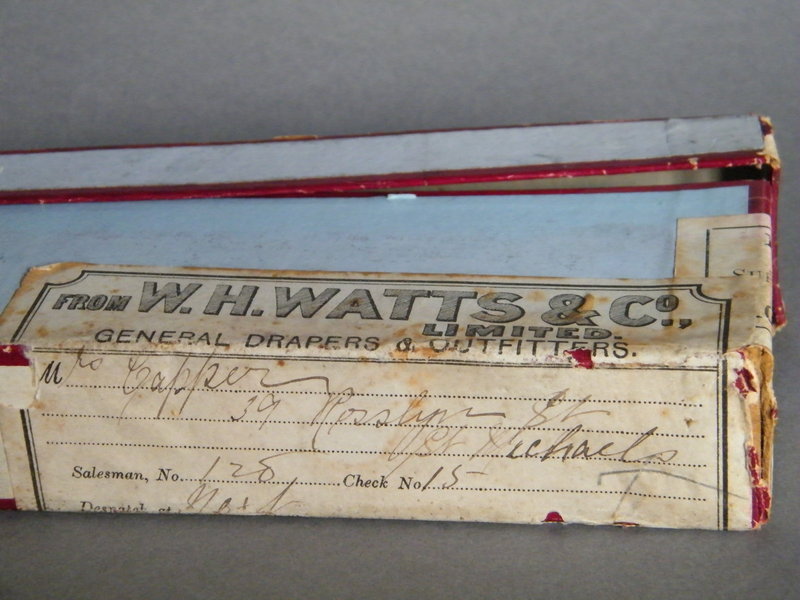 FROM W. H. WATTS & Co.,
LIMITED.
GENERAL DRAPERS & OUTFITTERS.
Mrs Capper
39 Rosslyn St
St Michaels
Salesman, No. 128 Check No 15
Despatch at Next